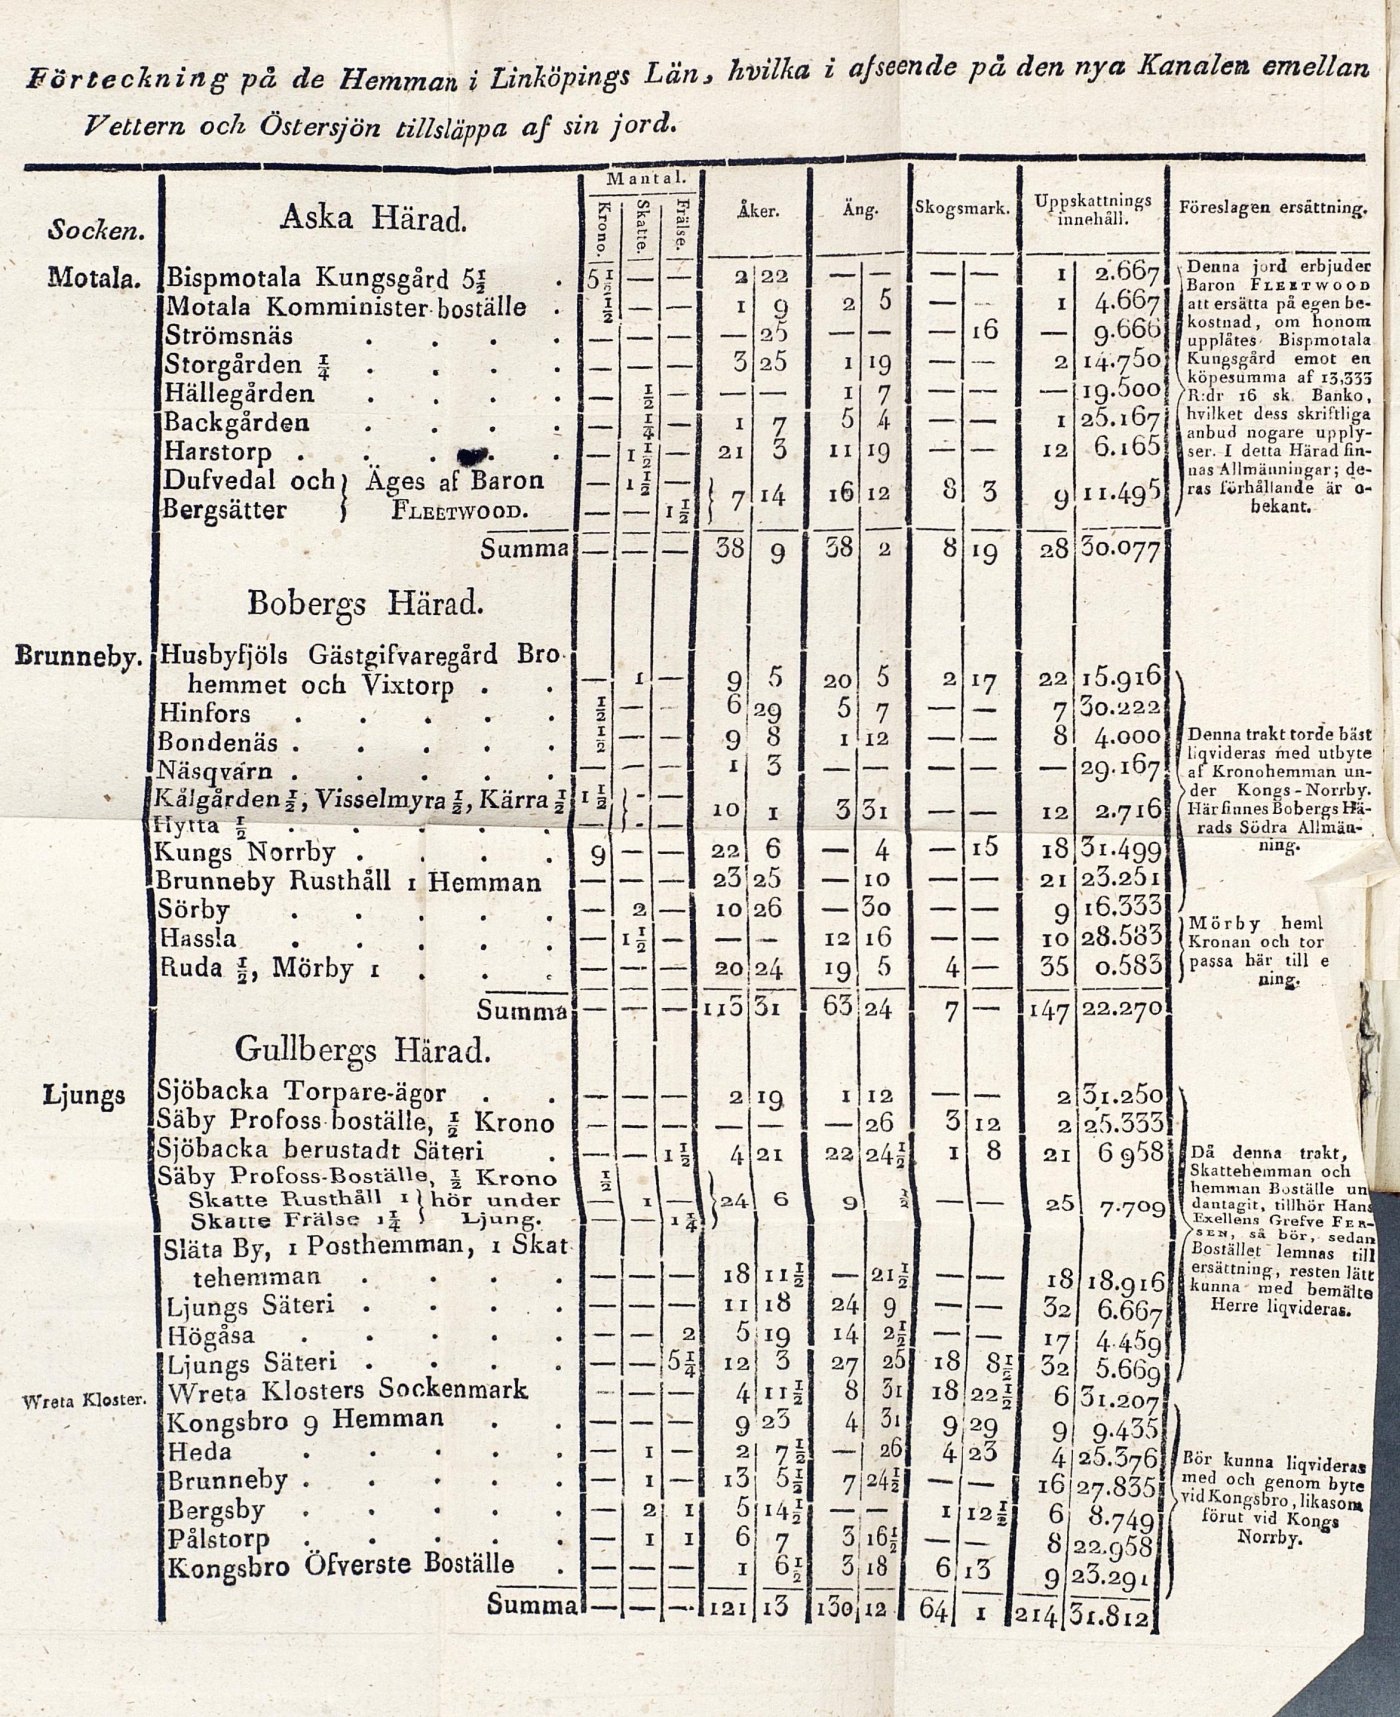 Förteckning på de Hemman i Linköpings Län, hvilka i afseende på den nya Kanalen emellan
Vettern och Östersjön tillsläppa af sin jord.
Socken. Aska Härad. Mantal. Krono. Skatte. Frälse. Åker. Äng. Skogsmark. Uppskattnings innehåll. Föreslagen ersättning.
Motala. Bispmotala Kungsgård 5½ . 5½ — — 2 22 — — — — 1 2.667
Motala Komminister boställe . ½ — — 1 9 2 5 — — 1 4.667
Strömsnäs . . . . — — — — 25 — — — 16 — 9.666
Storgården ¼ . . . . — — — 3 25 1 19 — — 2 14.750
Hällegården . . . . — ½ — — — 1 7 — — — 19.500
Backgården . . . . — ¼ — 1 7 5 4 — — 1 25.167
Harstorp . . . . — 1½ — 21 3 11 19 — — 12 6.165
Dufvedal och } Äges af Baron — 1½ —
Bergsätter } FLEETWOOD. — — 1½ } 7 14 16 12 8 3 9 11.495
Summa — — — 38 9 38 2 8 19 28 30.077
Denna jord erbjuder
Baron FLEETWOOD
att ersätta på egen be-
kostnad, om honom
upplåtes Bispmotala
Kungsgård emot en
köpesumma af 13,333
R:dr 16 sk. Banko,
hvilket dess skriftliga
anbud nogare upply-
ser. I detta Härad fin-
nas Allmänningar; de-
ras förhållande är o-
bekant.
Bobergs Härad.
Brunneby. Husbyfjöls Gästgifvaregård Bro
hemmet och Vixtorp . . — 1 — 9 5 20 5 2 17 22 15.916
Hinfors . . . . . ½ — — 6 29 5 7 — — 7 30.222
Bondenäs . . . . . ½ — — 9 8 1 12 — — 8 4.000
Näsqvarn . . . . . — — — 1 3 — — — — — 29.167
Kålgården ½, Visselmyra ½, Kärra ½ 1½ } - —
Hytta ½ . . . . . — } - — 10 1 3 31 — — 12 2.716
Kungs Norrby . . . . 9 — — 22 6 — 4 — 15 18 31.499
Brunneby Rusthåll 1 Hemman — — — 23 25 — 10 — — 21 23.251
Sörby . . . . . — 2 — 10 26 — 30 — — 9 16.333
Hassla . . . . . — 1½ — — — 12 16 — — 10 28.583
Ruda ½, Mörby 1 . . . — — — 20 24 19 5 4 — 35 0.583
Summa — — — 113 31 63 24 7 — 147 22.270
Denna trakt torde bäst
liqvideras med utbyte
af Kronohemman un-
der Kongs-Norrby.
Här finnes Bobergs Hä-
rads Södra Allmän-
ning.
Mörby heml
Kronan och tor
passa här till e
ning.
Gullbergs Härad.
Ljungs Sjöbacka Torpare-ägor . . — — — 2 19 1 12 — — 2 31.250
Säby Profoss boställe, ½ Krono — — — — — — 26 3 12 2 25.333
Sjöbacka berustadt Säteri . — — 1½ 4 21 22 24½ 1 8 21 6 958
Säby Profoss-Boställe, ½ Krono ½
Skatte Rusthåll 1 } hör under — 1 — } 24 6 9 ½ — — 25 7.709
Skatte Frälse 1¼ } Ljung. — — 1¼
Släta By, 1 Posthemman, 1 Skat
tehemman . . . . — — — 18 11½ — 21½ — — 18 18.916
Ljungs Säteri . . . . — — — 11 18 24 9 — — 32 6.667
Högåsa . . . . . — — 2 5 19 14 2½ — — 17 4.459
Ljungs Säteri . . . . — — 5¼ 12 3 27 25 18 8½ 32 5.669
Wreta Kloster. Wreta Klosters Sockenmark — — — 4 11½ 8 31 18 22½ 6 31.207
Kongsbro 9 Hemman . . — — — 9 23 4 31 9 29 9 9.435
Heda . . . . . — 1 — 2 7½ — 26 4 23 4 25.376
Brunneby . . . . . — 1 — 13 5½ 7 24½ — — 16 27.835
Bergsby . . . . . — 2 1 5 14½ — — 1 12½ 6 8.749
Pålstorp . . . . . — 1 1 6 7 3 16½ — — 8 22.958
Kongsbro Öfverste Boställe . — — — 1 6½ 3 18 6 13 9 23.291
Summa — — — 121 13 130 12 64 1 214 31.812
Då denna trakt,
Skattehemman och
hemman Boställe un
dantagit, tillhör Hans
Exellens Grefve FER-
SEN, så bör, sedan
Bostället lemnas till
ersättning, resten lätt
kunna med bemälte
Herre liqvideras.
Bör kunna liqvideras
med och genom byte
vid Kongsbro, likasom
förut vid Kongs
Norrby.